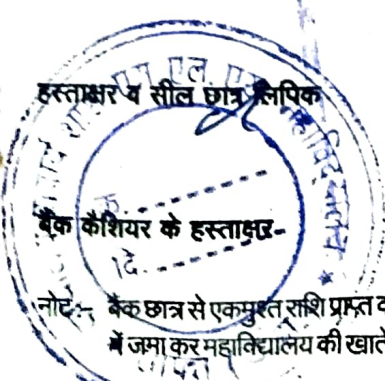 हस्ताक्षर व सील छात्र लिपिक
क.
बैंक कैशियर के हस्ताक्षर-
दि.
नोट:- बैंक छात्र से एकमुश्त राशि प्राप्त
में जमा कर महाविद्यालय की खाते